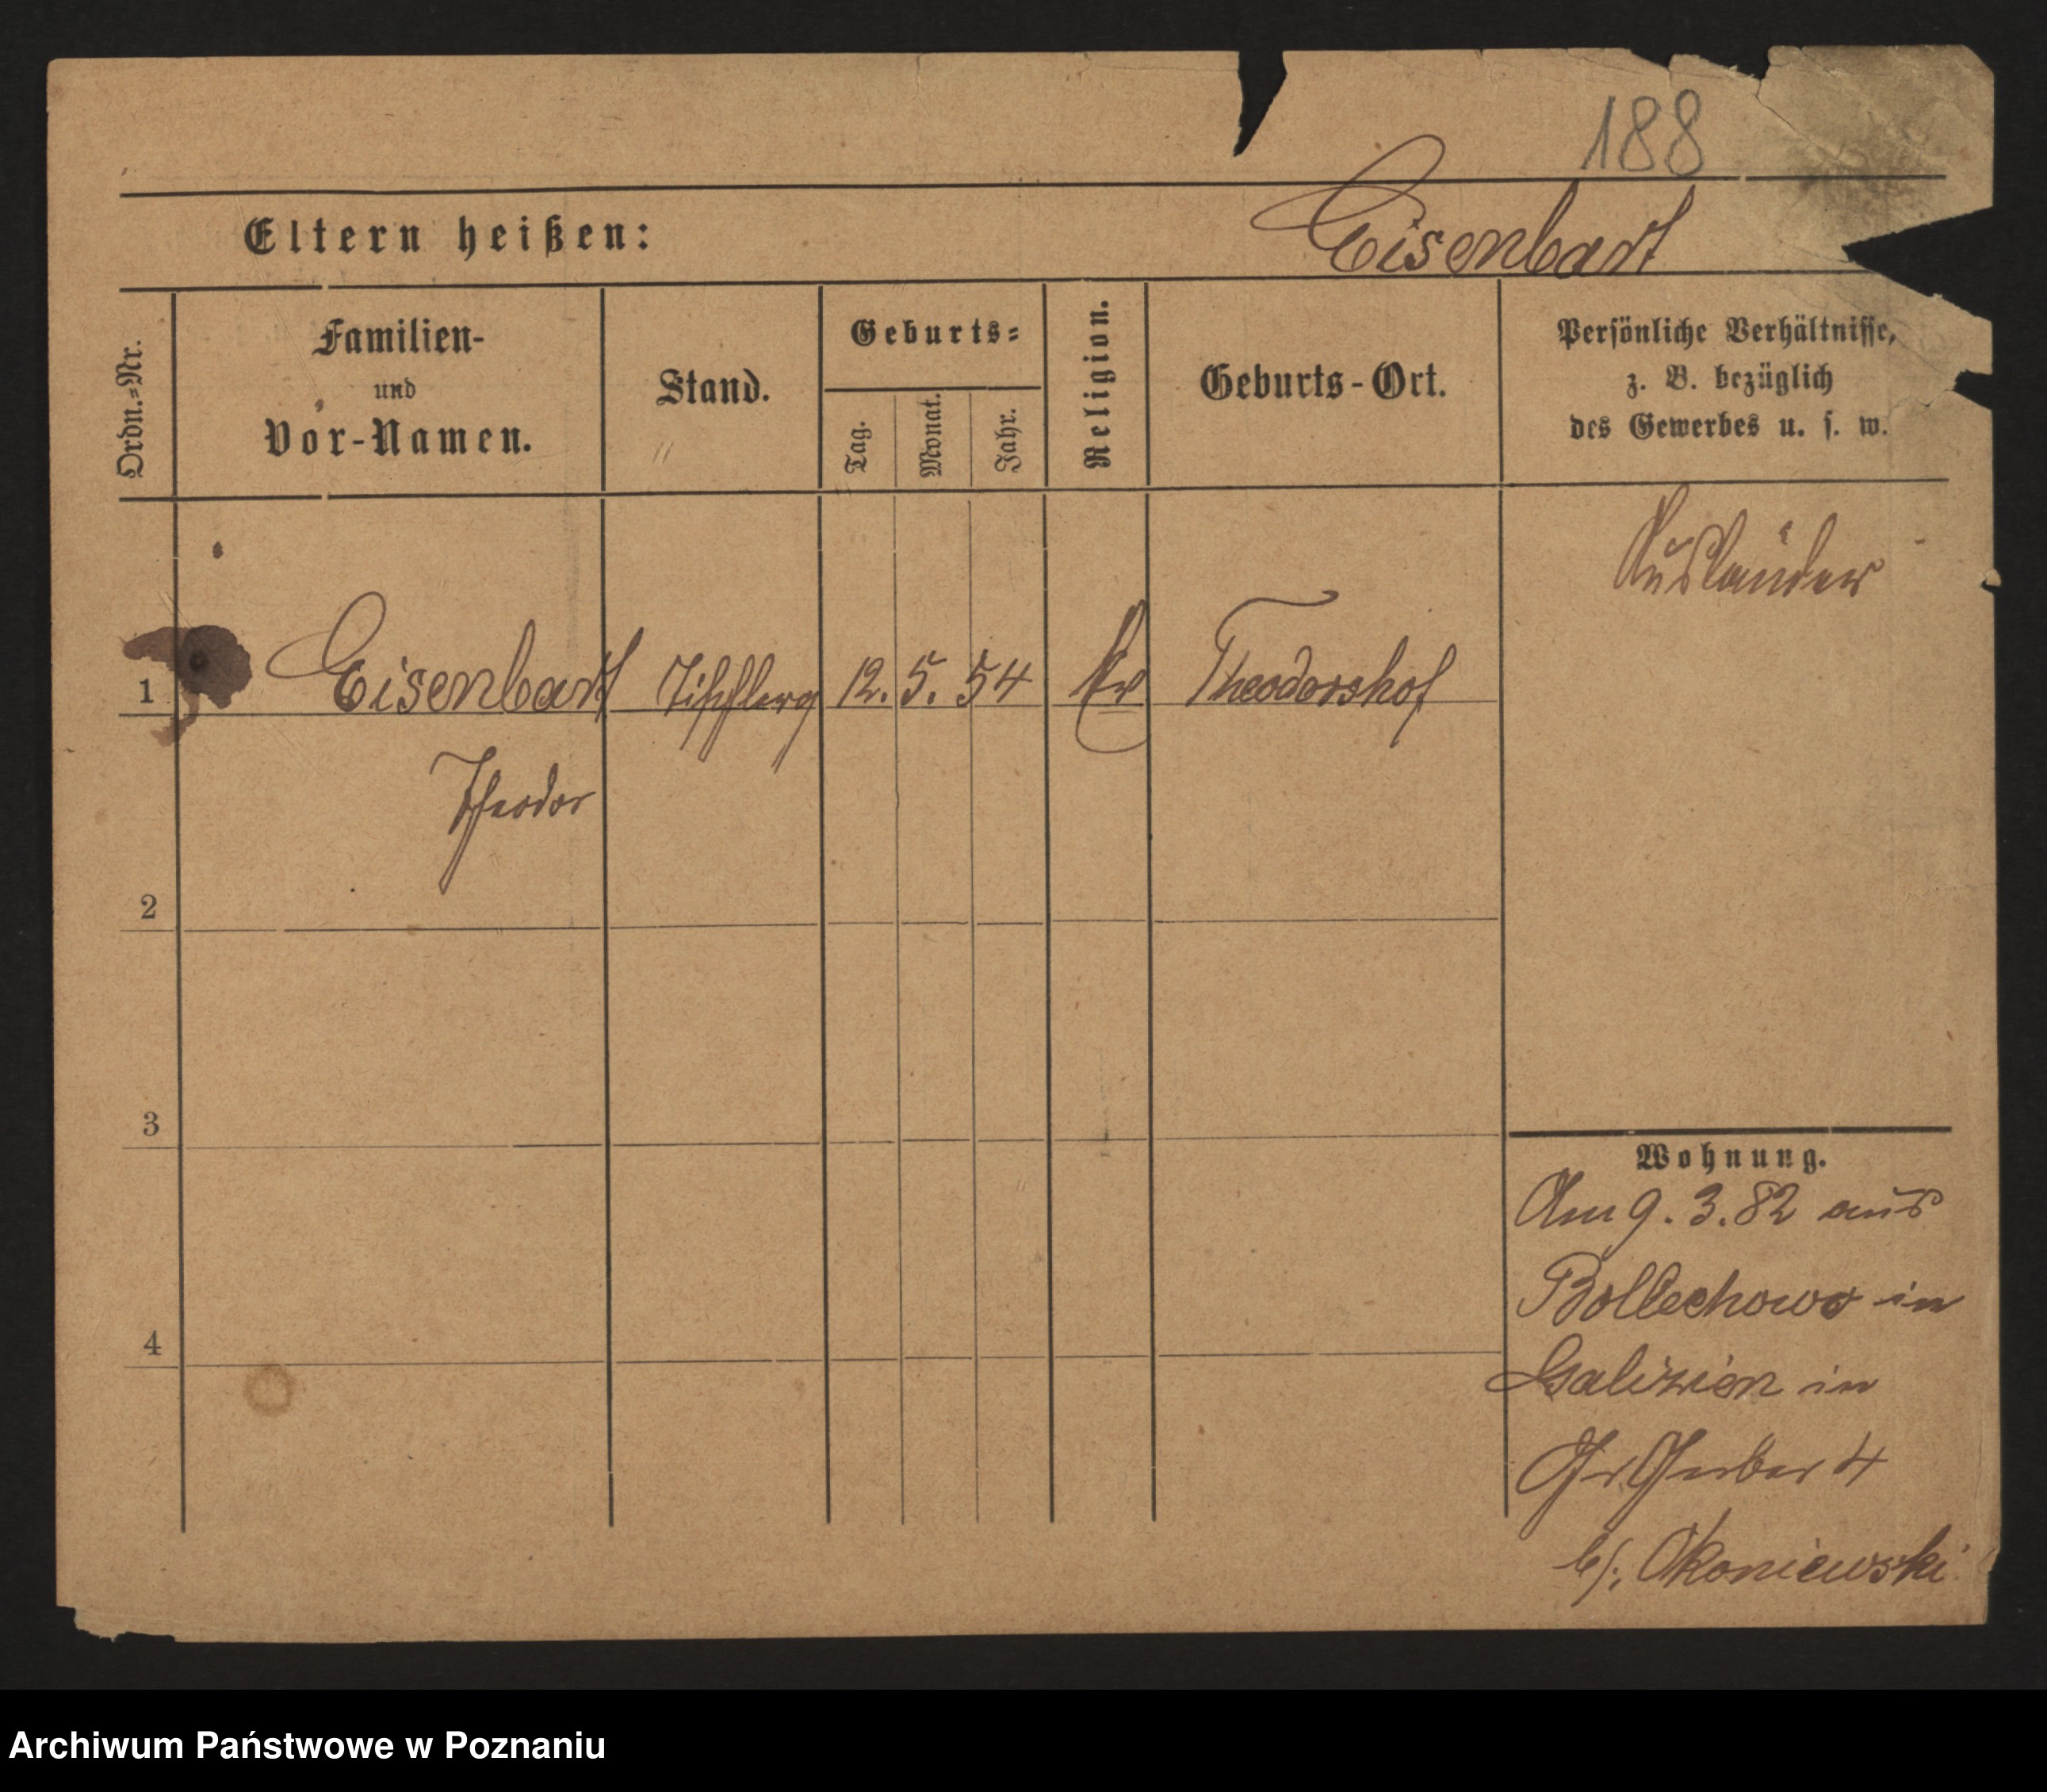 188
Eltern heißen: Eisenbart
Ordn.-Nr.
Familien-
und
Vor-Namen.
Stand.
Geburts-
Tag.
Monat.
Jahr.
Religion.
Geburts-Ort.
Persönliche Verhältnisse,
z. B. bezüglich
des Gewerbes u. s. w.
Ausländer
1 Eisenbart Tischlerg 12. 5. 54 Ev Theodorshof
Theodor
2
3
4
Wohnung.
Am 9. 3. 82 aus
Bollechowo in
Galizien in
Gr Gerber 4
b/: Okoniewski
Archiwum Państwowe w Poznaniu